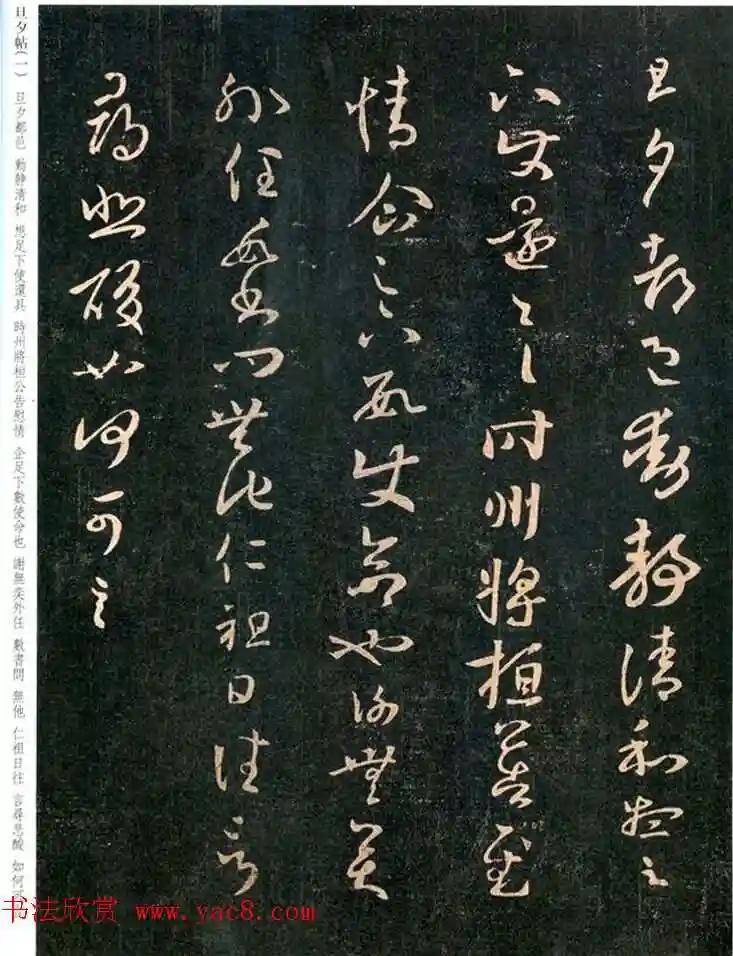 旦夕都邑動靜清和想足
下使還具時州將桓公告慰
情企足下數使命也謝無奕
外任數書問無他仁祖日往言
尋悲酸如何可言
旦夕帖(一) 旦夕都邑 動靜清和 想足下使還具 時州將桓公告慰情 企足下數使命也 謝無奕外任 數書問 無他 仁祖日往 言尋悲酸 如何可
书法欣赏 www.yac8.com